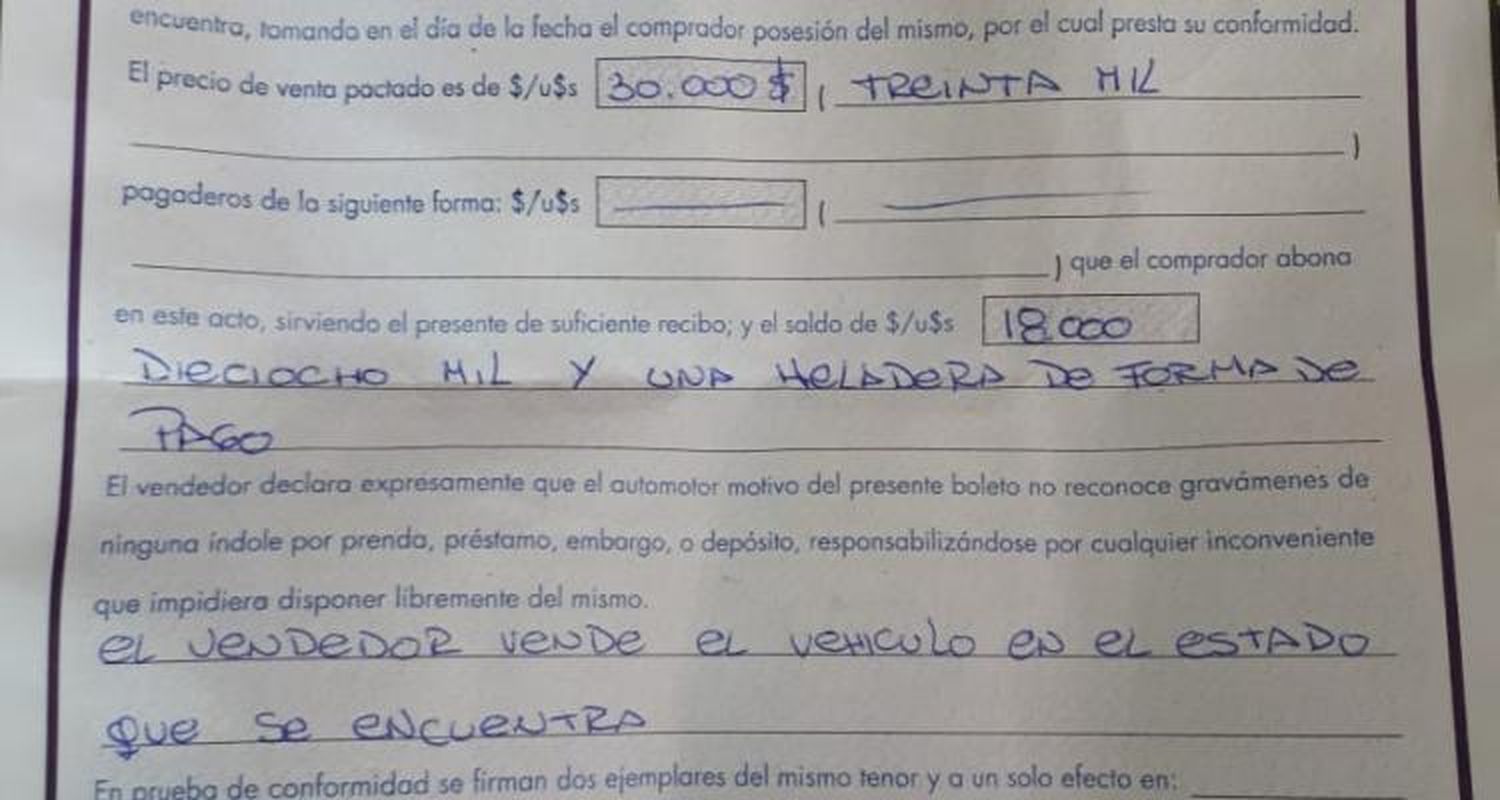 encuentra, tomando en el día de la fecha el comprador posesión del mismo, por el cual presta su conformidad.
El precio de venta pactado es de $/u$s 30.000 $ ( TREINTA MIL
)
pagaderos de la siguiente forma: $/u$s (
) que el comprador abona
en este acto, sirviendo el presente de suficiente recibo; y el saldo de $/u$s 18.000
DIECIOCHO MIL Y UNA HELADERA DE FORMA DE
PAGO
El vendedor declara expresamente que el automotor motivo del presente boleto no reconoce gravámenes de
ninguna índole por prenda, préstamo, embargo, o depósito, responsabilizándose por cualquier inconveniente
que impidiera disponer libremente del mismo.
EL VENDEDOR VENDE EL VEHICULO EN EL ESTADO
QUE SE ENCUENTRA
En prueba de conformidad se firman dos ejemplares del mismo tenor y a un solo efecto en: